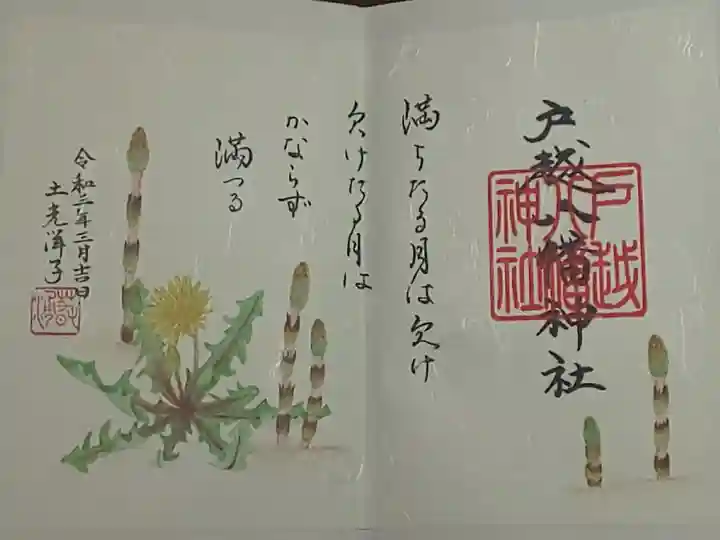 戸越八幡神社
戸越
八幡
神社
満ちたる月は欠け
欠けたる月は
かならず
満つる
令和三年三月吉日
土光洋子